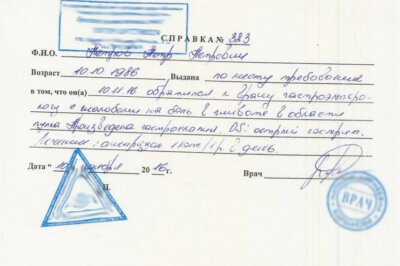 СПРАВКА № 323
Ф.И.О. Петров Петр Петрович
Возраст 10.10 1986 Выдана по месту требования
в том, что он(а) 10.11.16 обратился к врачу гастроэнтеро-
логу с жалобами на боль в животе в области
пупа. Произведена гастроскопия. DS: острый гастрит.
Лечение: 1 день.
Дата " 10 " ноября 2016г. Врач
П.
ВРАЧ